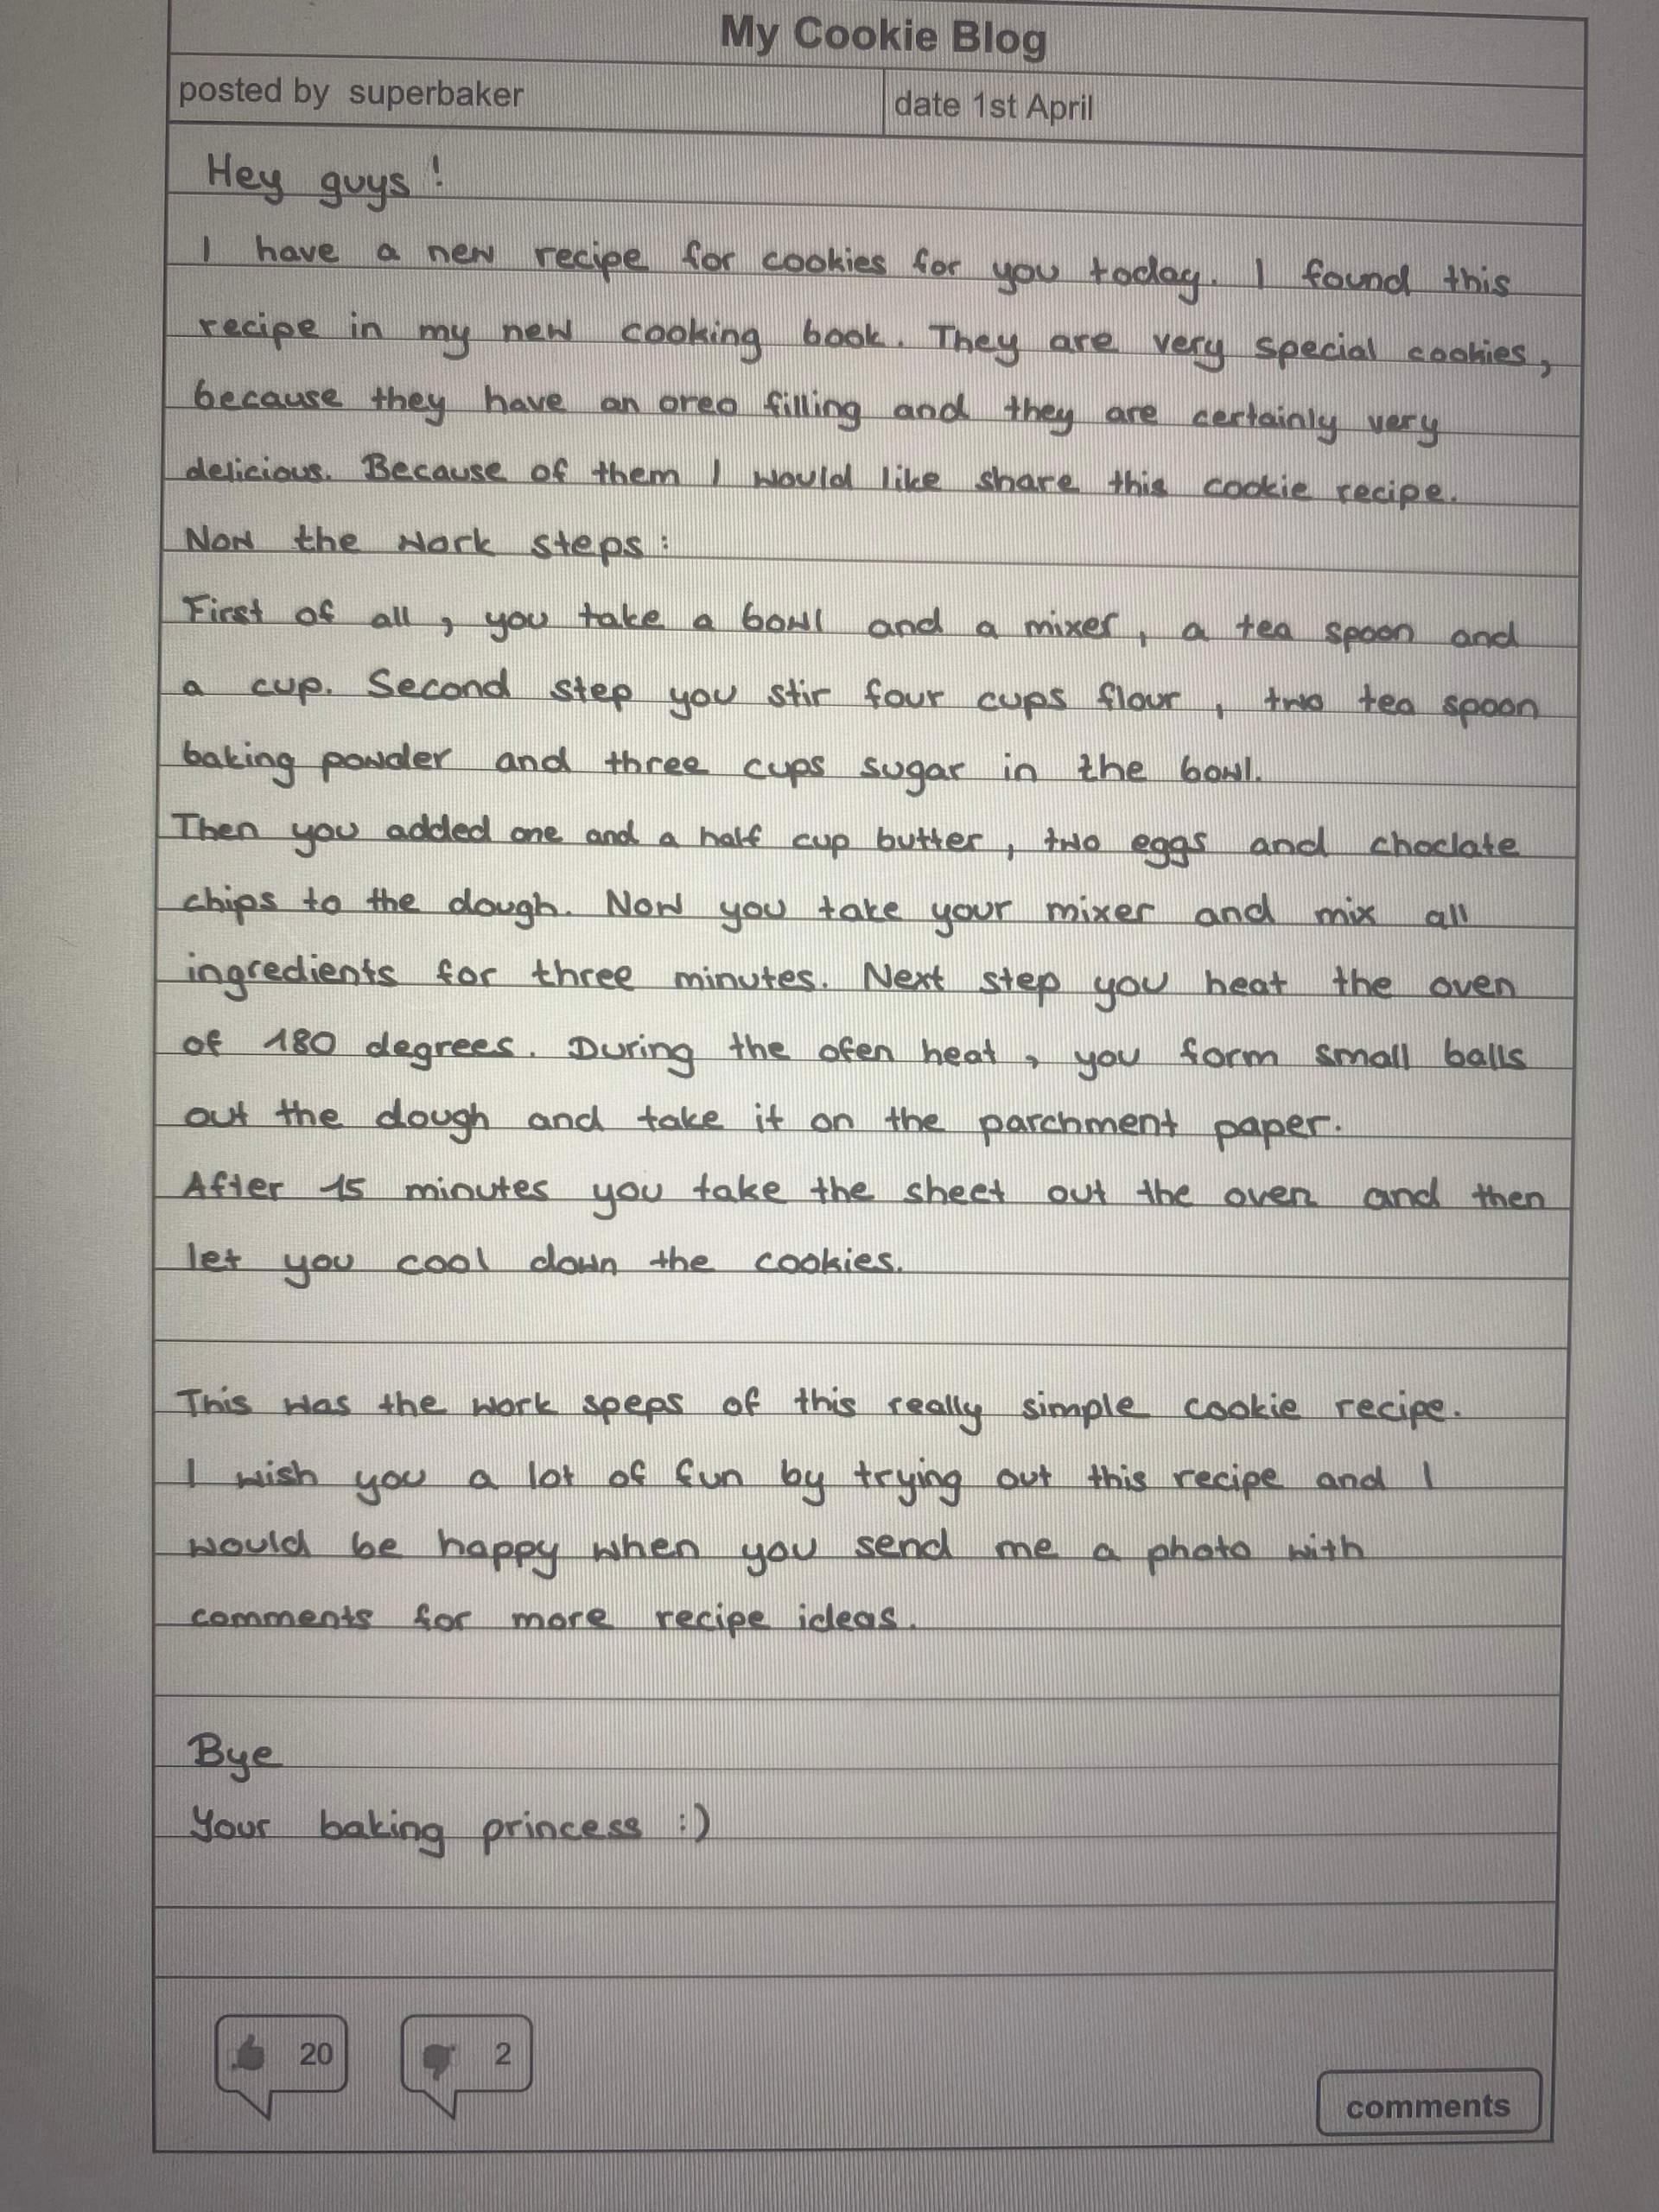 My Cookie Blog
posted by superbaker
date 1st April
Hey guys!
I have a new recipe for cookies for you today. I found this
recipe in my new cooking book. They are very special cookies,
because they have an oreo filling and they are certainly very
delicious. Because of them I would like share this cookie recipe.
Now the work steps:
First of all, you take a bowl and a mixer, a tea spoon and
a cup. Second step you stir four cups flour, two tea spoon
baking powder and three cups sugar in the bowl.
Then you added one and a half cup butter, two eggs and choclate
chips to the dough. Now you take your mixer and mix all
ingredients for three minutes. Next step you heat the oven
of 180 degrees. During the ofen heat, you form small balls
out the dough and take it on the parchment paper.
After 15 minutes you take the sheet out the oven and then
let you cool down the cookies.
This was the work speps of this really simple cookie recipe.
I wish you a lot of fun by trying out this recipe and I
would be happy when you send me a photo with
comments for more recipe ideas.
Bye
Your baking princess :)
20
2
comments